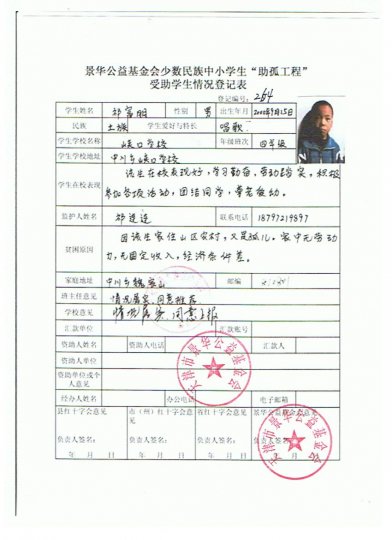 景华公益基金会少数民族中小学生“助孤工程”
受助学生情况登记表
登记编号：264
学生姓名 祁富朋 性别 男 出生年月 2000年9月15日
民族 土族 学生爱好与特长 唱歌
学生学校名称 峡口学校 年级班次 四年级
学生学校地址 中川乡峡口学校
学生在校表现 该生在校表现好，学习勤奋，劳动踏实，积极
参加各项活动，团结同学，尊老爱幼。
监护人姓名 祁连连 联系电话 18797219897
贫困原因 因该生家住山区农村，又是孤儿。家中无劳动
力，无固定收入，经济条件差。
家庭地址 中川乡魏家山 邮编
班主任意见 情况属实，同意推荐
学校意见 情况属实 同意上报
汇款单位 汇款账号
资助人姓名 资助人电话 汇款人
资助人单位
资助单位或个
人意见
经办人姓名 办公电话 电子邮箱
县红十字会意见 市（州）红十字会意见 省红十字会意见 景华公益基金会意见
负责人签名： 负责人签名： 负责人签名： 负责人签名：
年 月 日 年 月 日 年 月 日 年 月 日
天津市景华公益基金会
天津市景华公益基金会